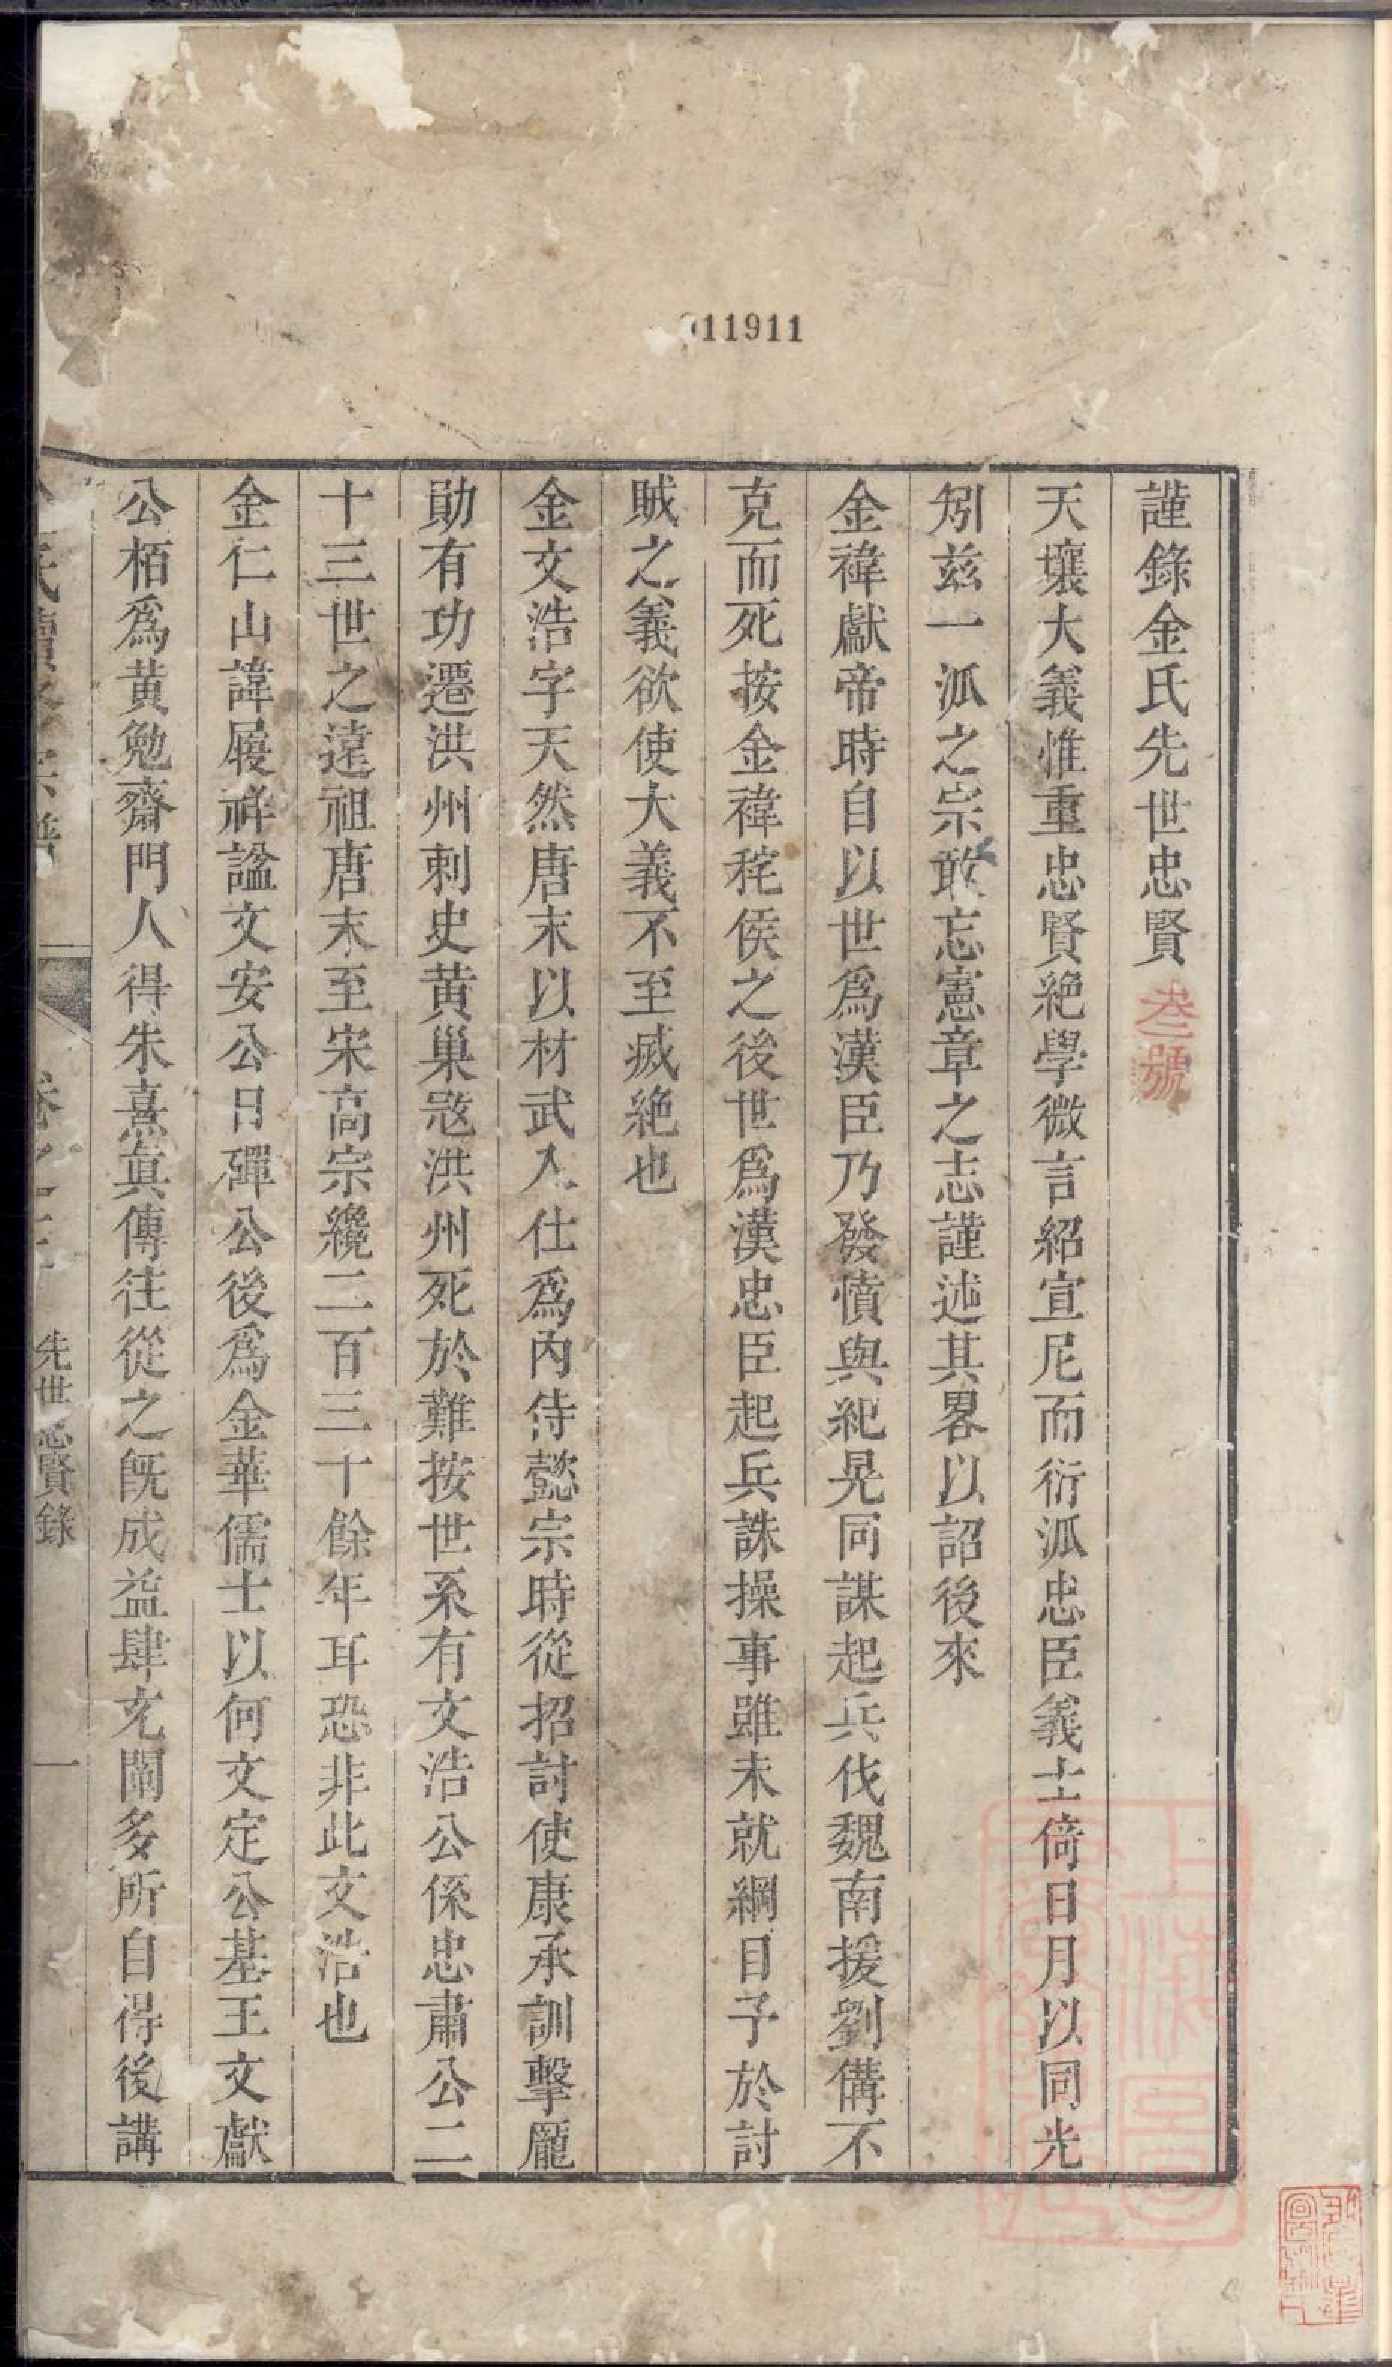 011911
謹錄金氏先世忠賢 叁號
天壤大義惟重忠賢絶學微言紹宣尼而衍派忠臣義士倚日月以同光
矧兹一派之宗敢忘憲章之志謹述其畧以詔後來
金禕獻帝時自以世爲漢臣乃發憤與紀晃同謀起兵伐魏南援劉備不
克而死按金禕秺侯之後世爲漢忠臣起兵誅操事雖未就綱目予於討
賊之義欲使大義不至滅絶也
金文浩字天然唐末以材武入仕爲內侍懿宗時從招討使康承訓擊龐
勛有功遷洪州刺史黃巢宼洪州死於難按世系有文浩公係忠肅公二
十三世之遠祖唐末至宋高宗纔二百三十餘年耳恐非此文浩也
金仁山諱履祥諡文安公日磾公後爲金華儒士以何文定公基王文獻
公栢爲黃勉齋門人得朱熹眞傳往從之旣成益肆充闡多所自得後講
先世忠賢錄
一